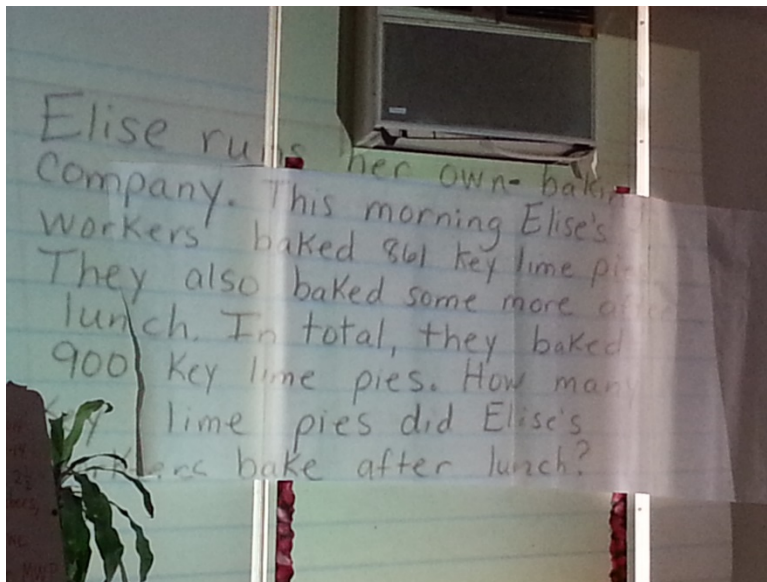 Elise runs her own bakin
company. This morning Elise's
workers baked 861 key lime pies
They also baked some more after
lunch. In total, they baked
900 key lime pies. How many
key lime pies did Elise's
workers bake after lunch?